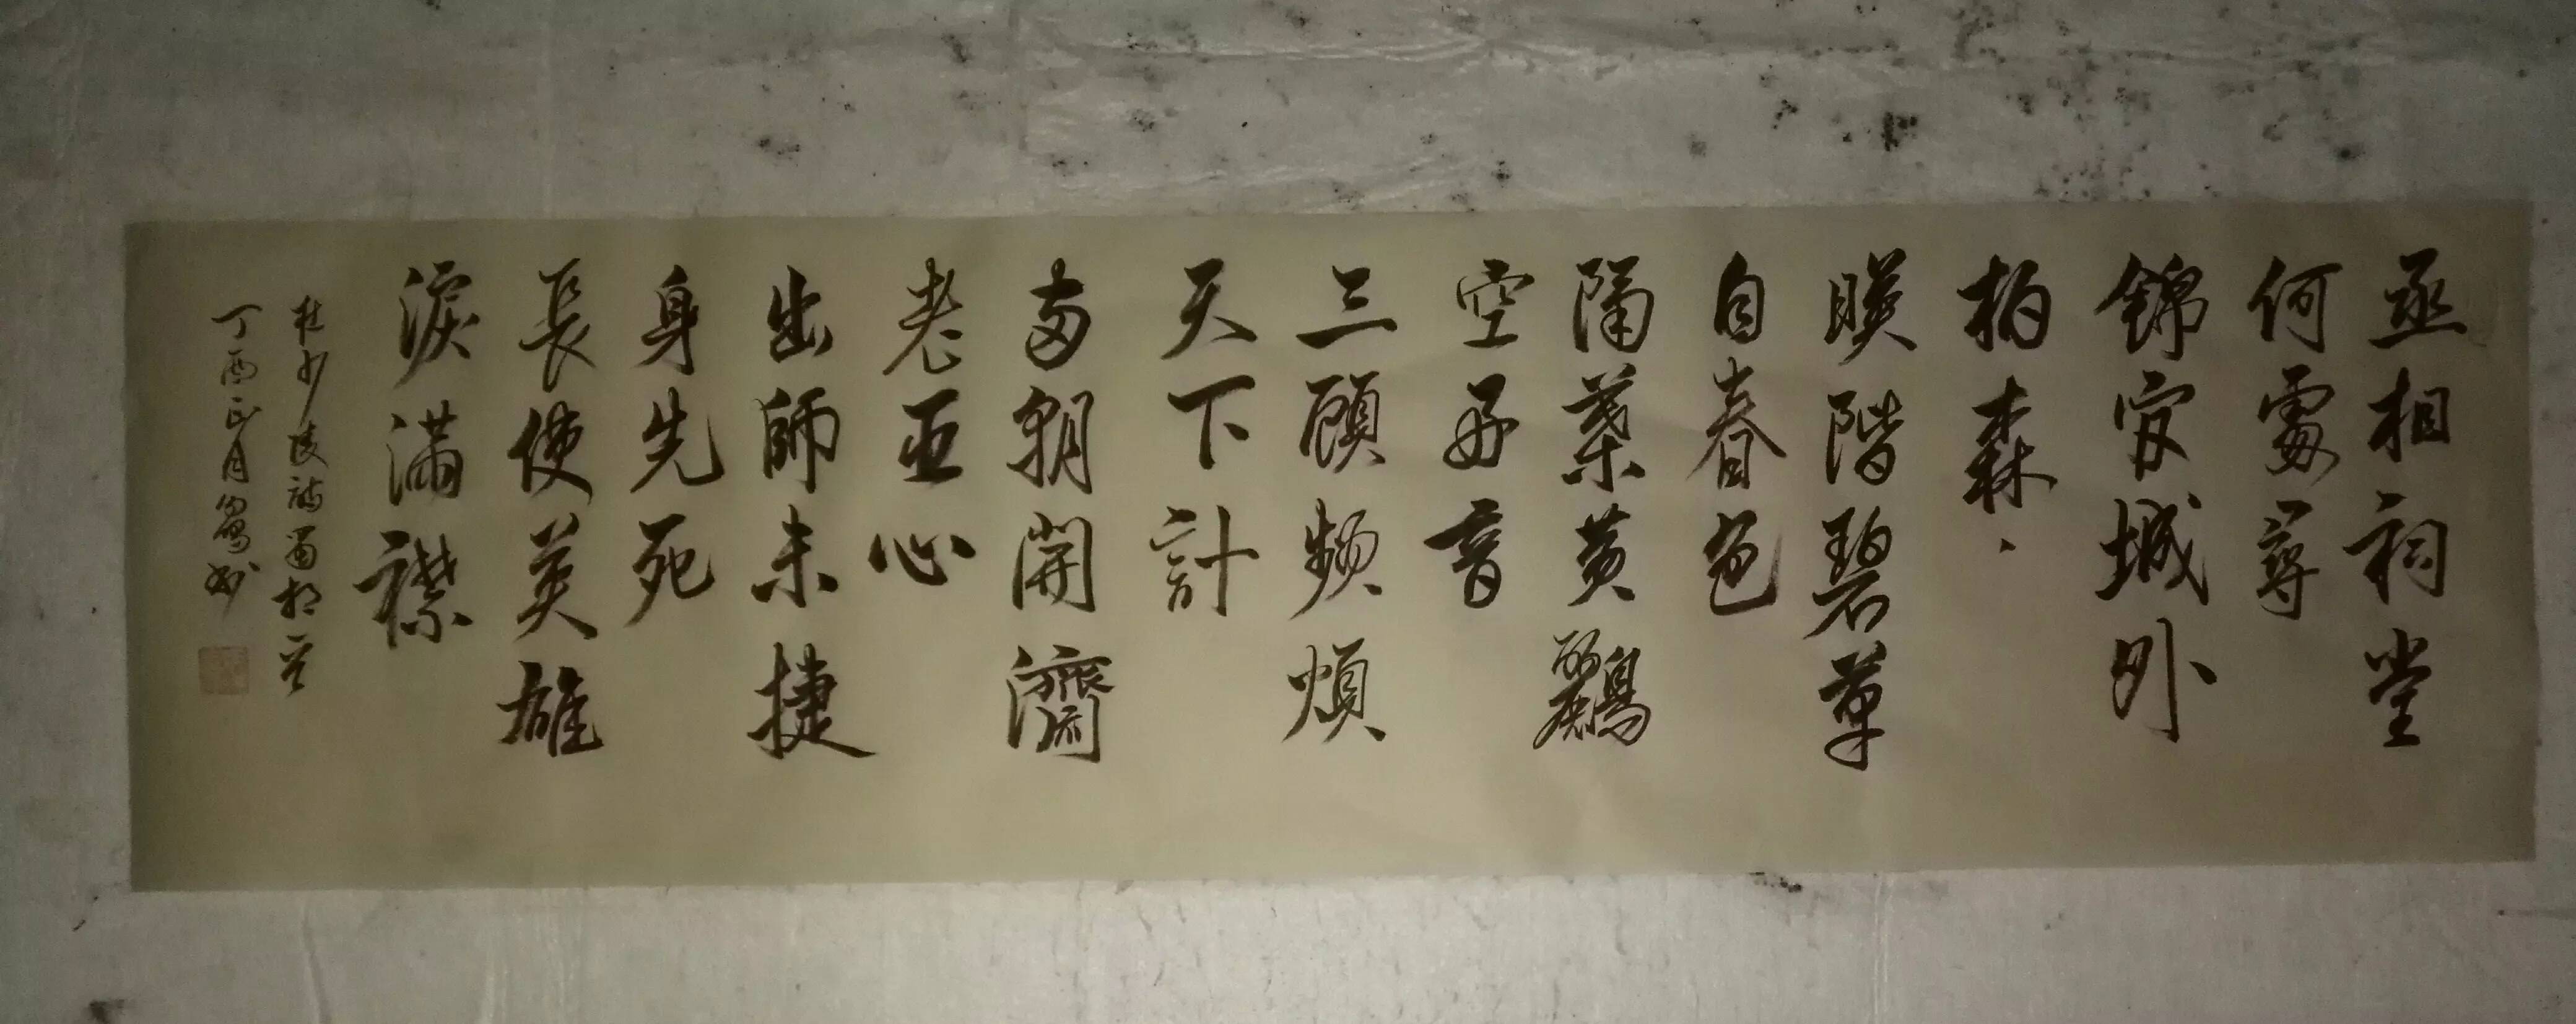 丞相祠堂
何處尋
錦官城外
柏森、
暎階碧草
自春色
隔葉黃鸝
空好音
三顧頻煩
天下計
两朝開濟
老臣心
出師未捷
身先死
長使英雄
淚滿襟
杜少陵詩蜀相一首
丁酉正月